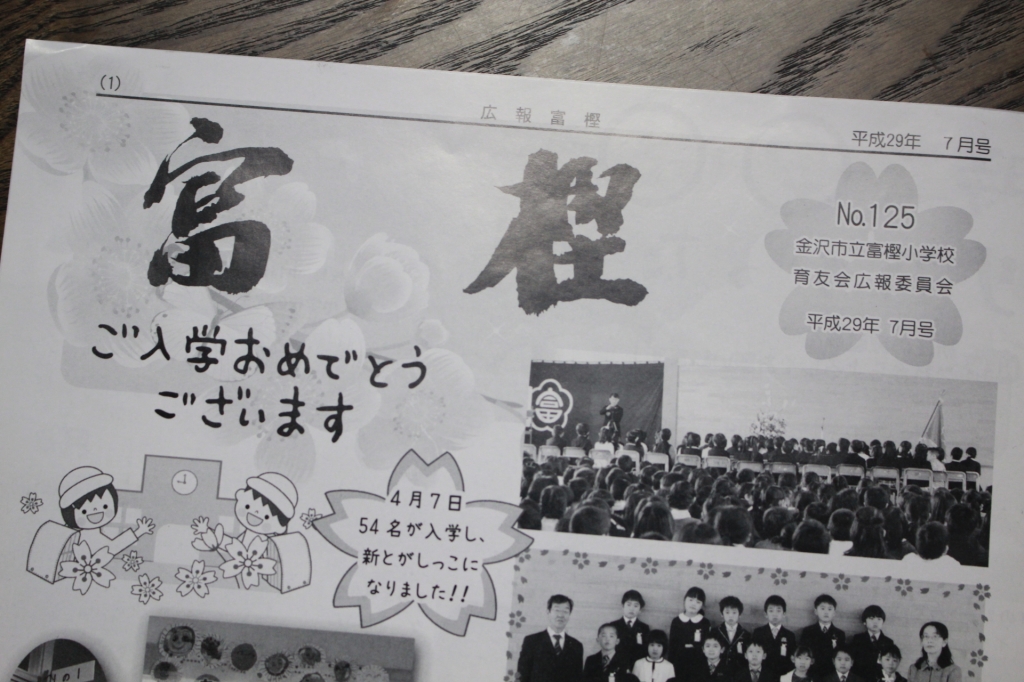 (1)
広報富樫
平成29年 7月号
富樫
No.125
金沢市立富樫小学校
育友会広報委員会
平成29年 7月号
ご入学おめでとう
ございます
富
4月7日
54名が入学し、
新とがしっこに
なりました!!